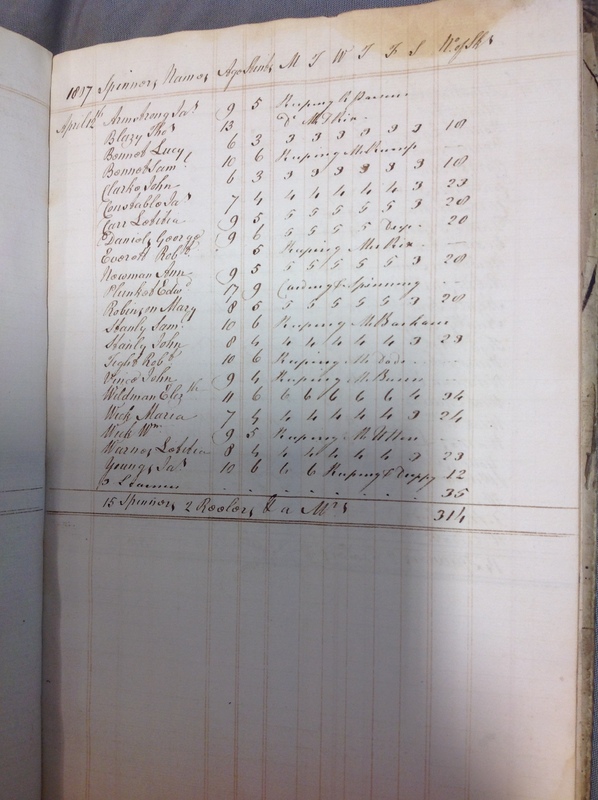 1807 Spinners Names Age Stint M T W T F S No of Sks
April 12th Armstrong Jas 9 5 Keeping
Blazy Thos 13 Do Mr Rix
Bennet Lucy 6 3 3 3 3 3 3 3 18
Bennet Saml 10 6 Keeping Mr
Clarke John 6 3 3 3 3 3 3 3 18
Constable Jas 7 4 4 4 4 4 4 3 23
Carr Lætitia 9 5 5 5 5 5 5 3 28
Daniels George 9 6 5 5 5 5 20
Everett Robt 5 Keeping Mr Rix
Newman Ann 9 5 5 5 5 5 5 3 28
Plunket Edwd 17 9 Carding & Spinning
Robinson Mary 8 5 5 5 5 5 5 3 28
Stanly Saml 10 6 Keeping Mr Barham
Stanly John 8 4 4 4 4 4 4 3 23
Tight Robt 10 6 Keeping Mr
Vince John 9 4 Keeping Mr
Wildman Elizth 11 6 6 6 6 6 6 4 34
Wick Maria 7 4 4 4 4 4 4 3 24
Wick Wm 9 5 Keeping Mr
Warnes Lætitia 8 4 4 4 4 4 4 3 23
Youngs Jas 10 6 6 6 Keeping 12
35
15 Spinners 2 Reelers & a Mrs 314